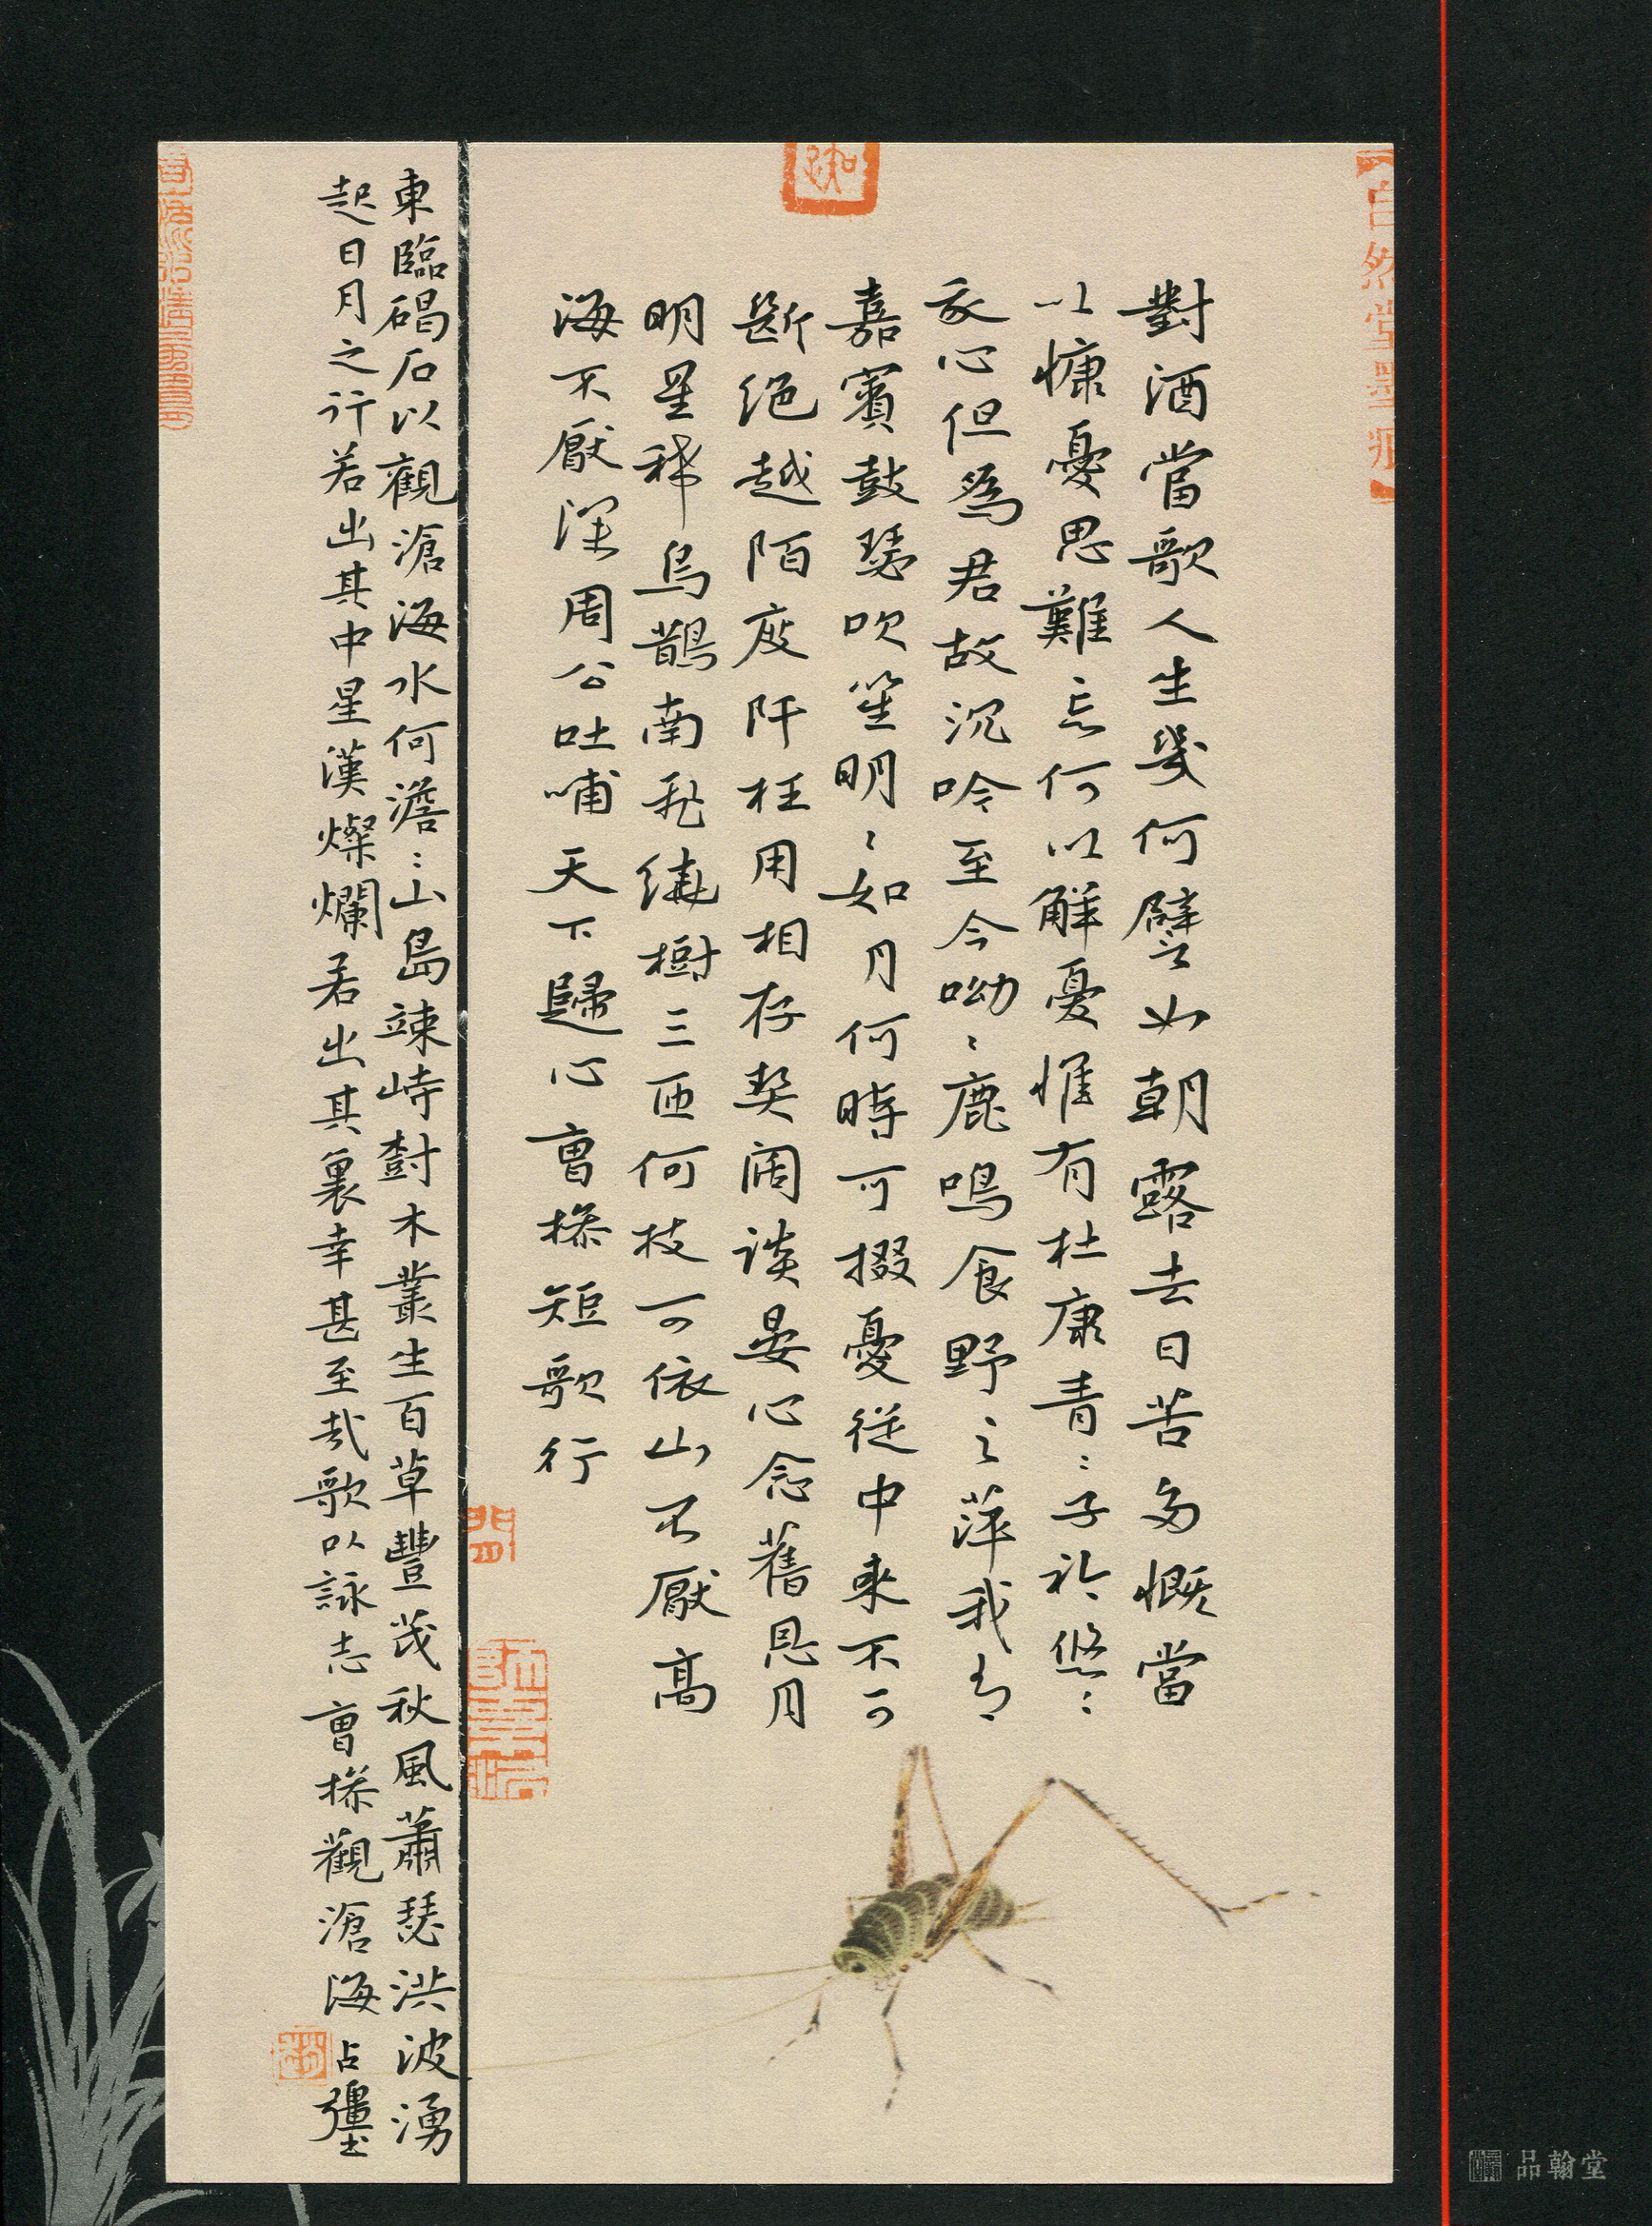 對酒當歌人生幾何譬如朝露去日苦多慨當
以慷憂思難忘何以解憂惟有杜康青〻子衿悠〻
我心但為君故沉吟至今呦〻鹿鳴食野之萍我有
嘉賓鼓瑟吹笙明〻如月何時可掇憂從中來不可
斷絕越陌度阡枉用相存契闊談晏心念舊恩月
明星稀烏鵲南飛繞樹三匝何枝可依山不厭高
海不厭深周公吐哺天下歸心曹操短歌行
東臨碣石以觀滄海水何澹〻山島竦峙樹木叢生百草豐茂秋風蕭瑟洪波湧
起日月之行若出其中星漢燦爛若出其裏幸甚至哉歌以詠志曹操觀滄海占疆書
自然堂墨痕
品翰堂